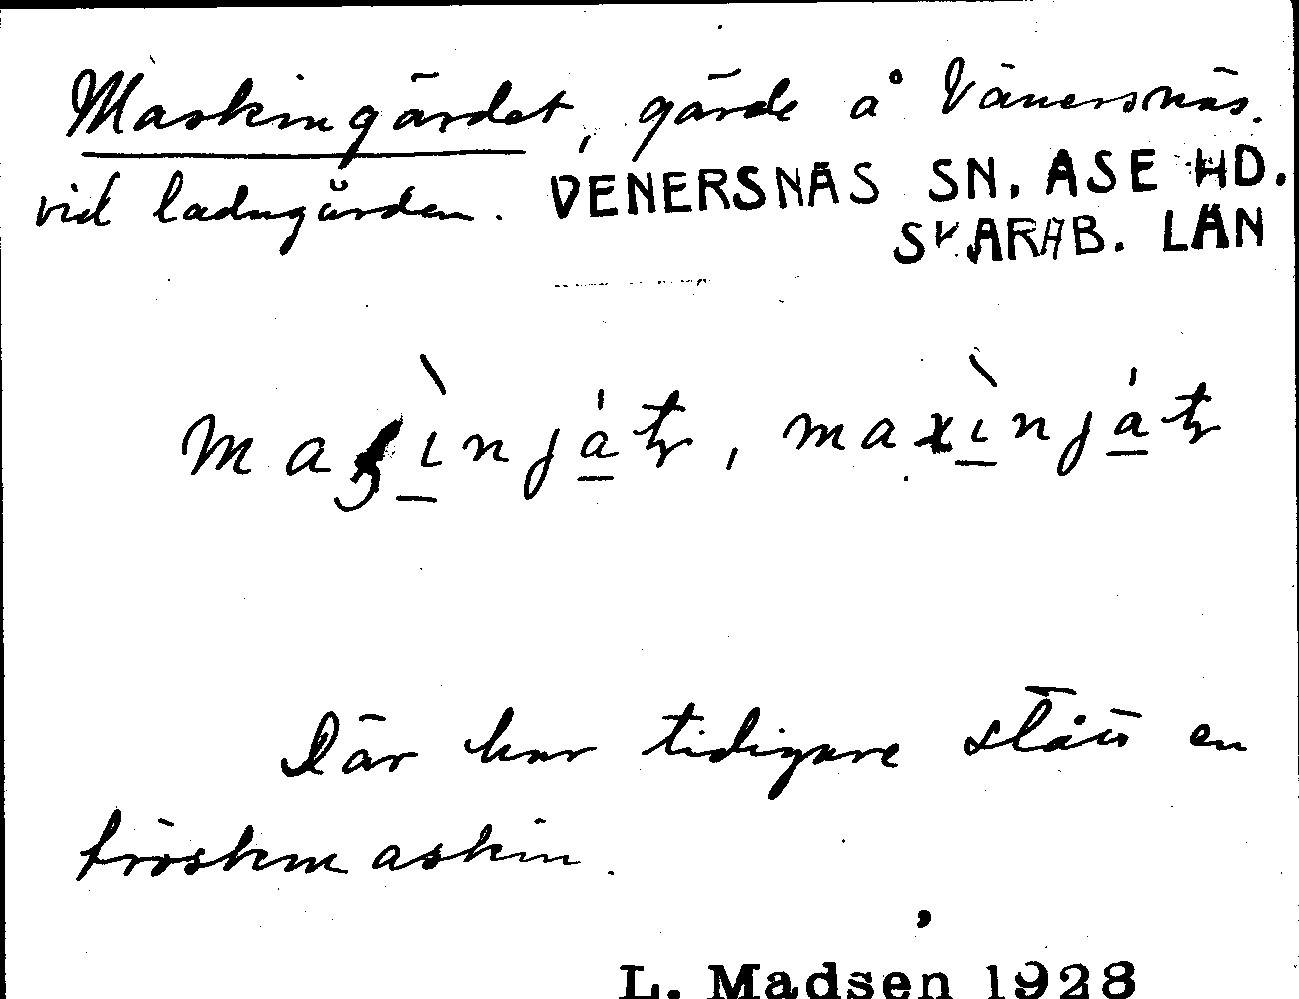 Maskingärdet, gärde å Vänersnäs.
vid ladugården. VENERSNÄS SN. ÅSE HD.
SKARAB. LÄN
maxinjat
Där har tidigare stått en
tröskmaskin.
L. Madsen 1928